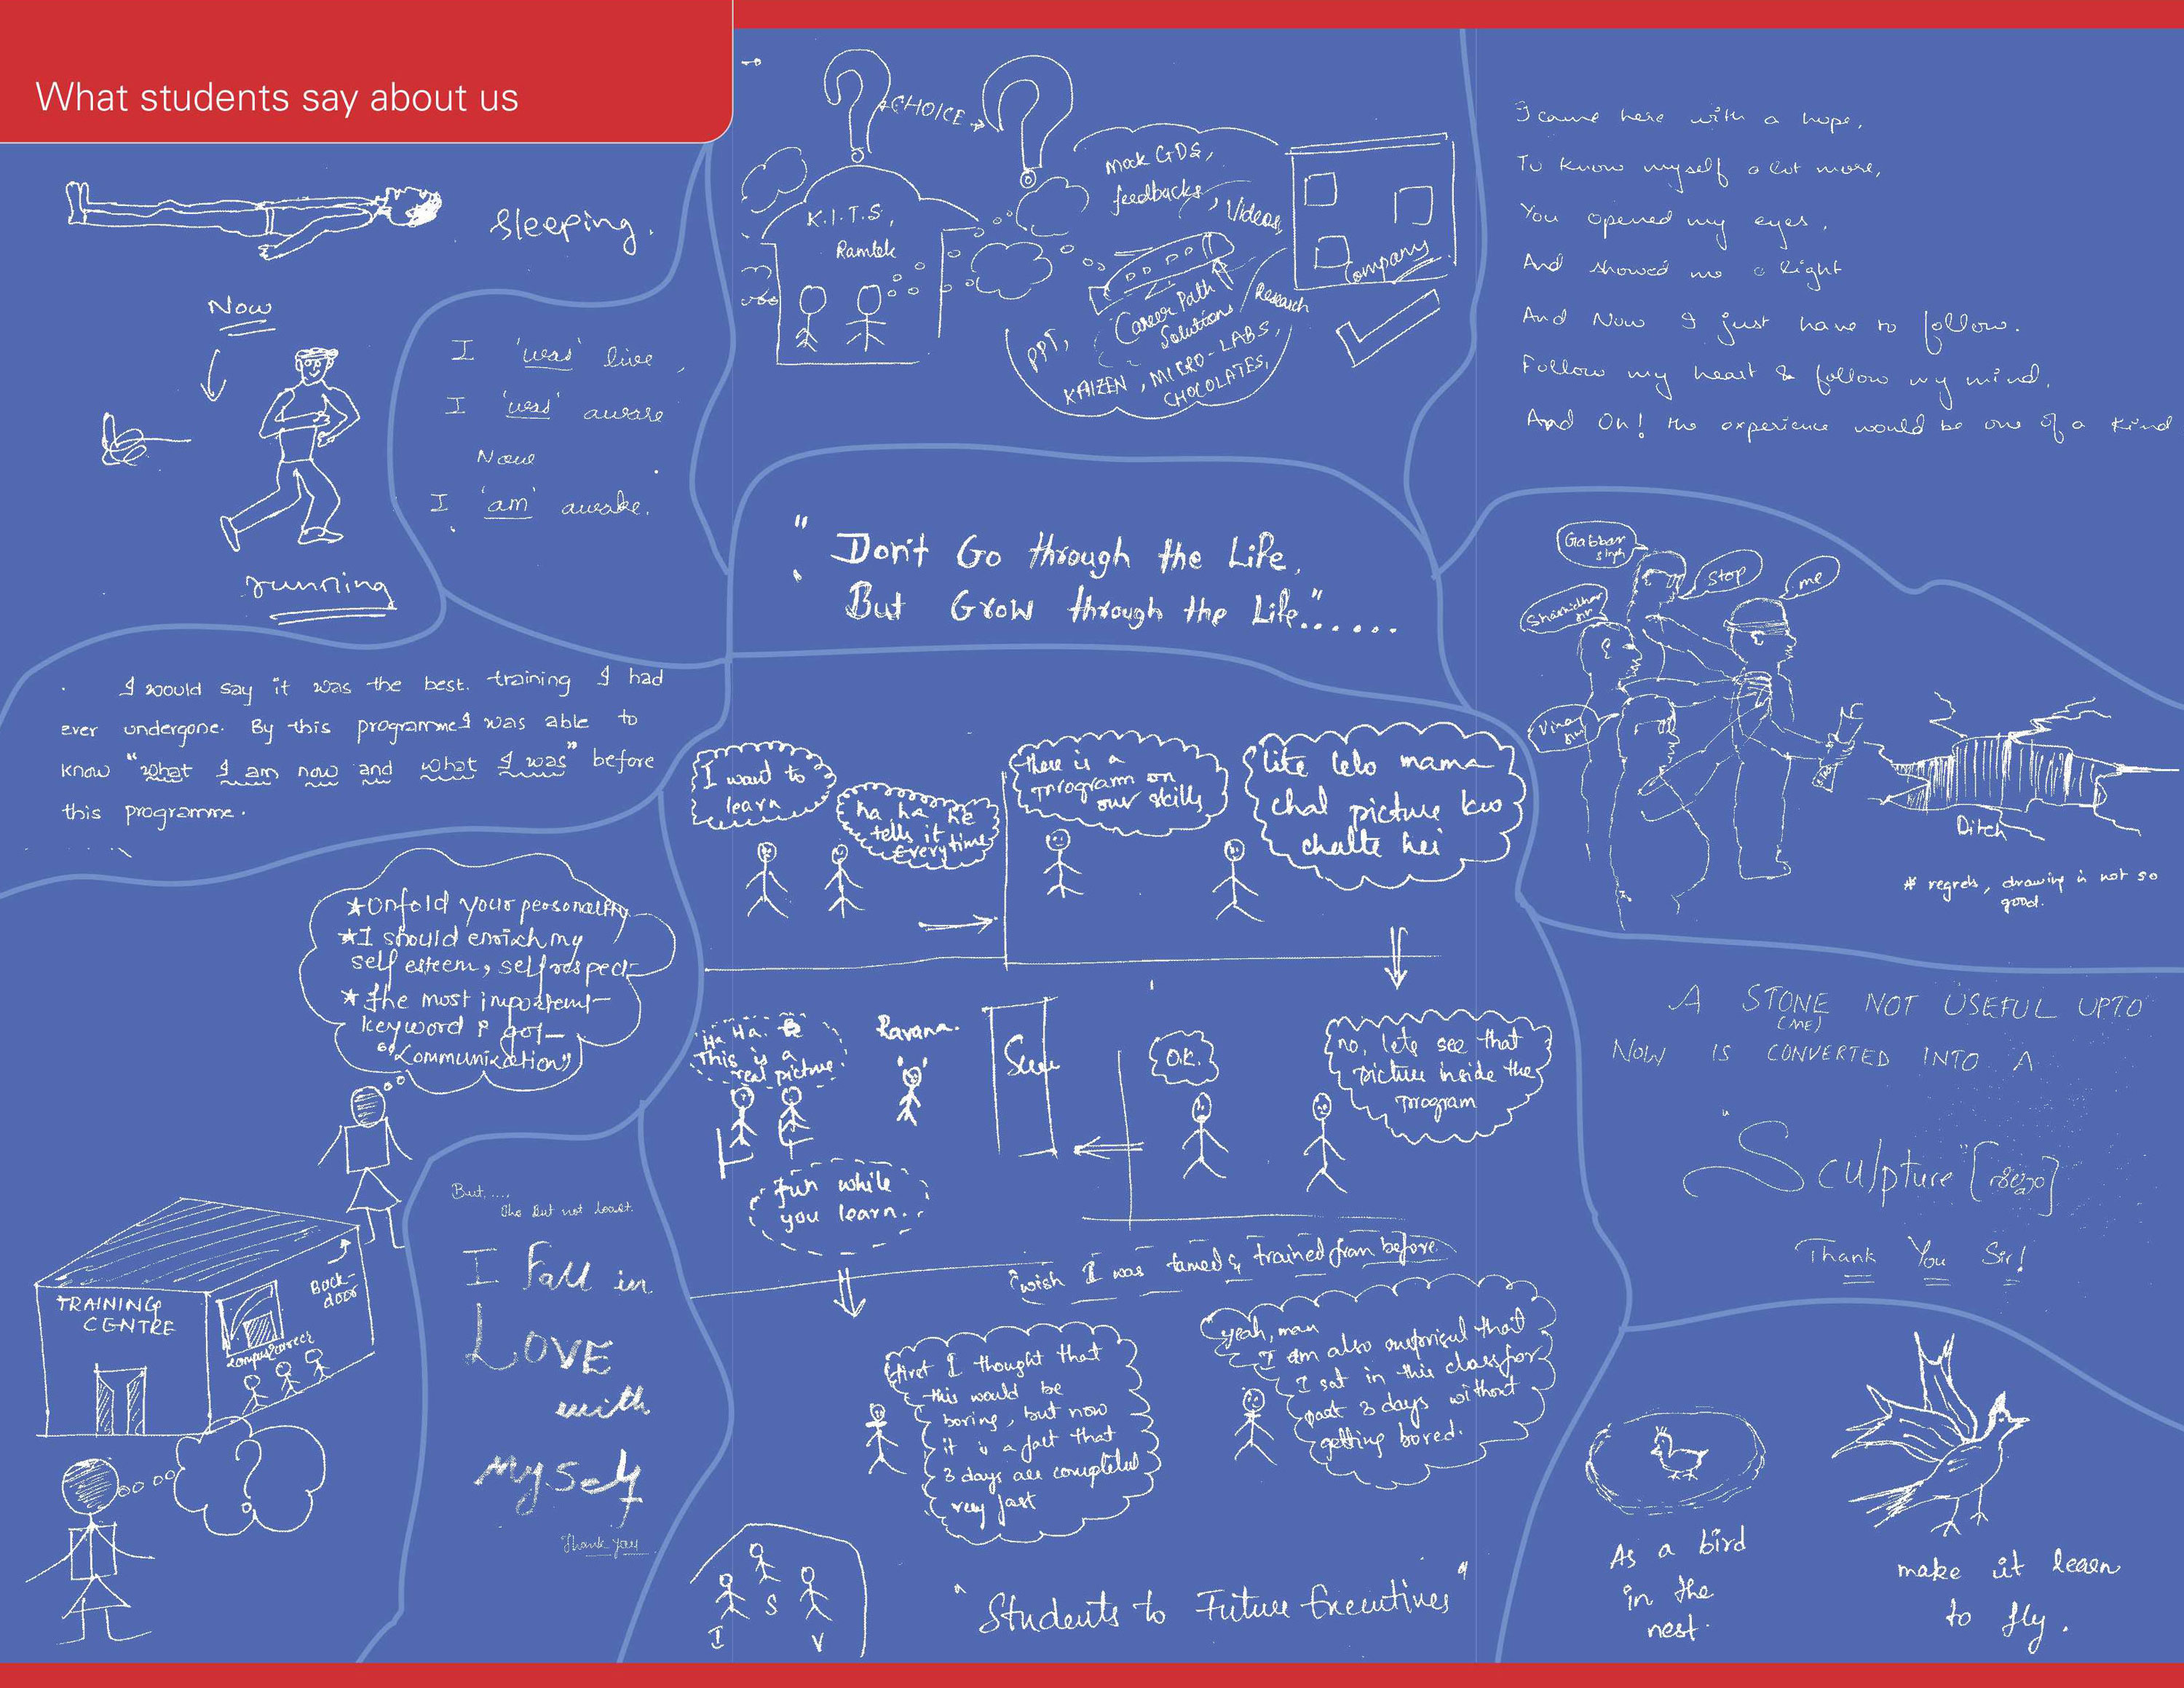 What students say about us
Sleeping.
Now
running
I 'was' live,
I 'was' aware
Now
I 'am' awake.
CHOICE
K.I.T.S,
Ramtek
Mock GDs,
feedbacks,
Videos,
Career Path
Solutions
Research
PPT,
KAIZEN, MICRO-LABS,
CHOCOLATES,
Company
I came here with a hope,
To know myself a lot more,
You opened my eyes,
And showed me a light
And Now I just have to follow.
Follow my heart & follow my mind.
And Oh! the experience would be one of a kind
"Don't Go through the Life,
But Grow through the Life"......
Gabbar
Singh
Stop
me
Ditch
* regrets, drawing is not so
good.
I would say it was the best. training I had
ever undergone. By this programme I was able to
know "what I am now and what I was" before
this programme.
I want to
learn
ha ha he
tells it
Everytime
there is a
program on
our skills
lite lelo mama
chal picture ko
chalte hei
Ha. Ha.
This is a
real picture.
Ravana.
Screen
O.K.
no, lets see that
picture inside the
program
fun while
you learn..
"wish I was tamed & trained from before.
first I thought that
this would be
boring, but now
it is a fact that
3 days are completed
very fast
yeah, man
I am also surprised that
I sat in this class for
past 3 days without
getting bored.
I S V
"Students to Future Executives"
★Unfold your personality
★I should enrich my
self esteem, self respect
★the most important
keyword I got
"Communication"
TRAINING
CENTRE
Back-
door
campus2career
?
But.....
but not least.
I Fall in
LOVE
with
myself
Thank you
A STONE NOT USEFUL UPTO
(ME)
NOW IS CONVERTED INTO A
"Sculpture"
Thank You Sir!
As a bird
in the
nest.
make it learn
to fly.